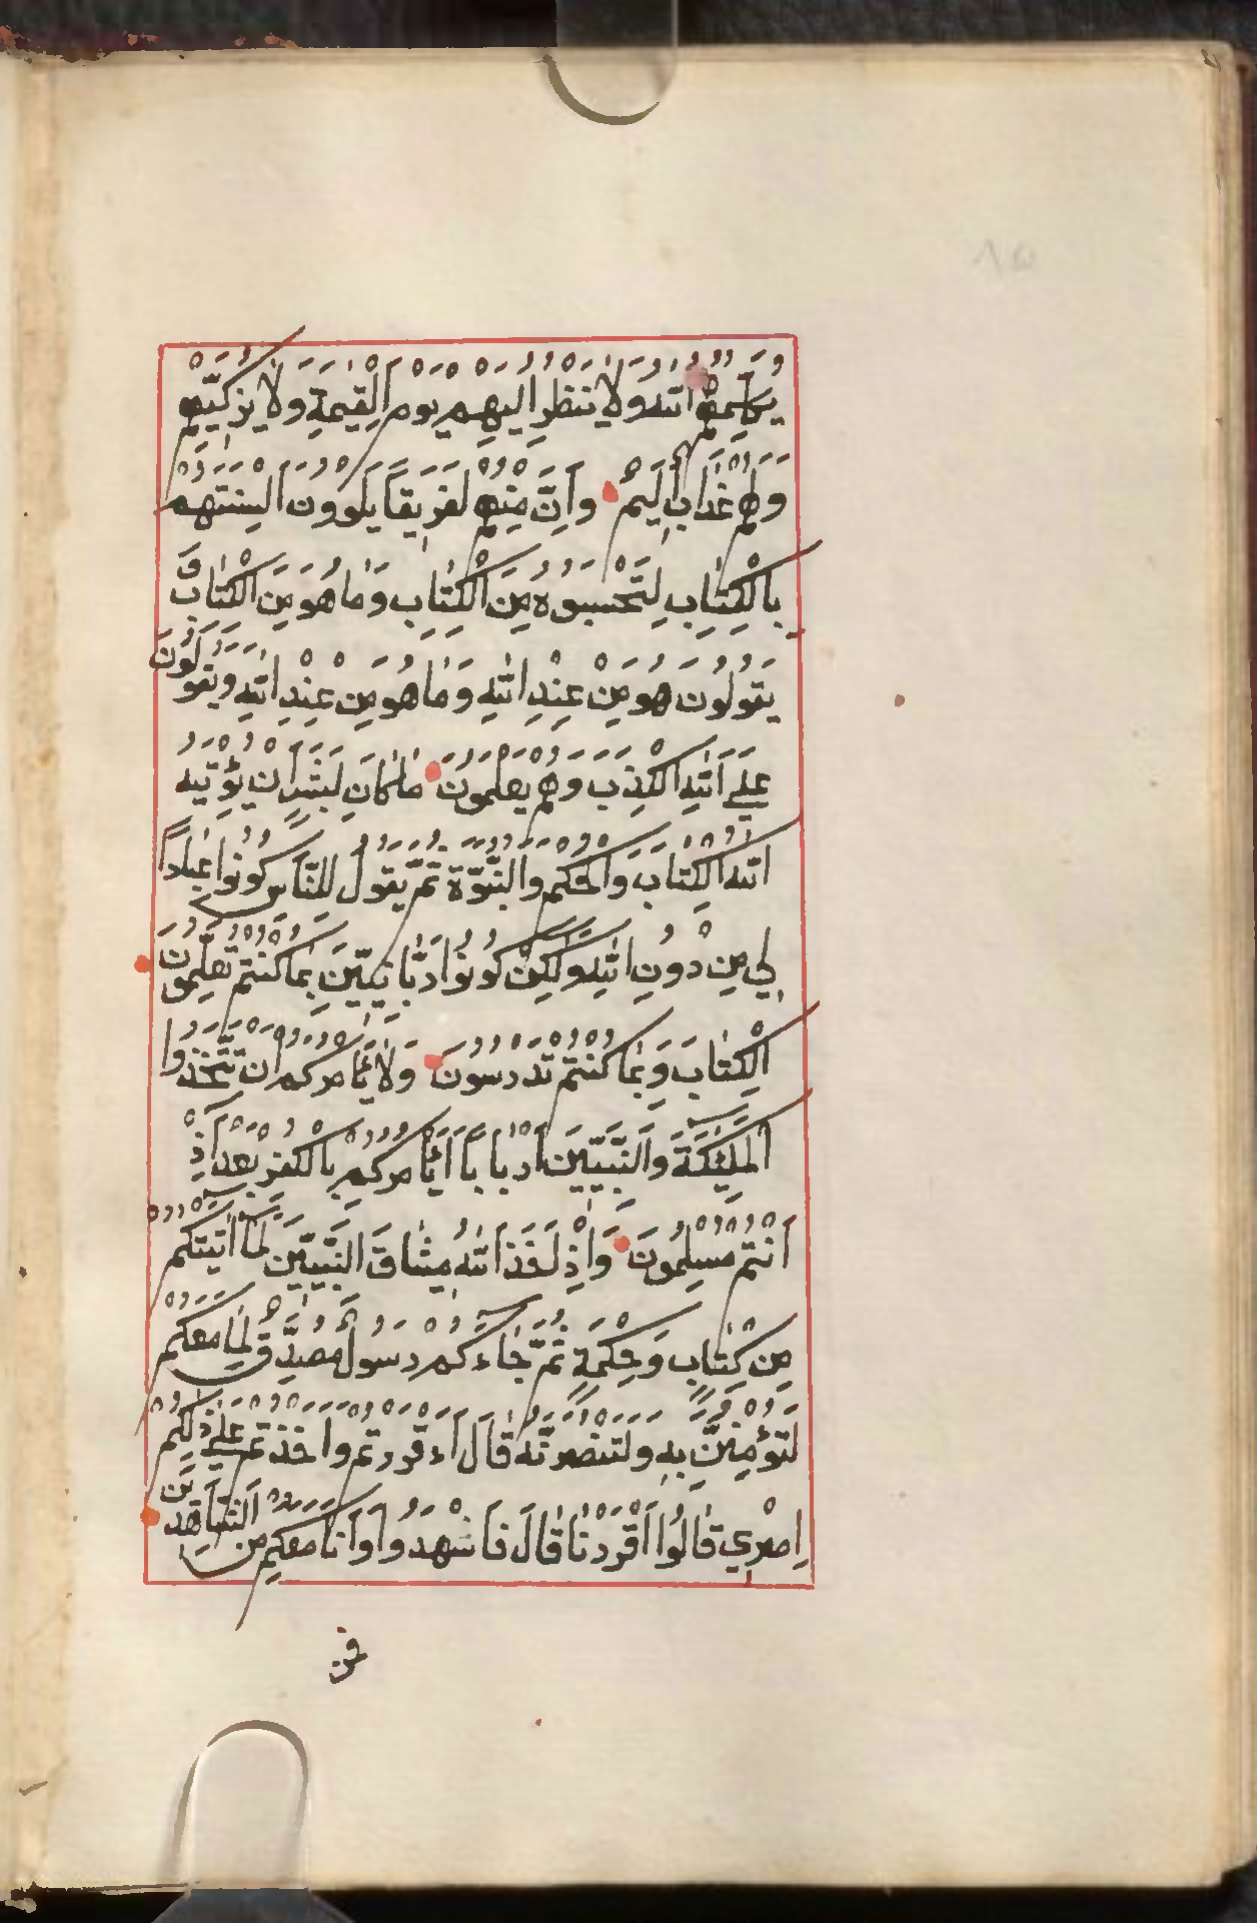 يُكَلِّمُهُمُ اللّٰهُ وَلَا يَنْظُرُ اِلَيْهِمْ يَوْمَ الْقِيٰمَةِ وَلَا يُزَكِّيْهِمْ
وَلَهُمْ عَذَابٌ اَلِيمٌ وَاِنَّ مِنْهُمْ لَفَرِيقًا يَلْوُونَ اَلْسِنَتَهُمْ
بِالْكِتَابِ لِتَحْسَبُوهُ مِنَ الْكِتَابِ وَمَا هُوَ مِنَ الْكِتَابِ وَ
يَقُولُونَ هُوَ مِنْ عِنْدِ اللّٰهِ وَمَا هُوَ مِنْ عِنْدِ اللّٰهِ وَيَقُولُونَ
عَلَى اللّٰهِ الْكَذِبَ وَهُمْ يَعْلَمُونَ مَا كَانَ لِبَشَرٍ اَنْ يُؤْتِيَهُ
اللّٰهُ الْكِتَابَ وَالْحُكْمَ وَالنُّبُوَّةَ ثُمَّ يَقُولَ لِلنَّاسِ كُونُوا عِبَادًا
لِي مِنْ دُونِ اللّٰهِ وَلٰكِنْ كُونُوا رَبَّانِيِّينَ بِمَا كُنْتُمْ تُعَلِّمُونَ
الْكِتَابَ وَبِمَا كُنْتُمْ تَدْرُسُونَ وَلَا يَأْمُرَكُمْ اَنْ تَتَّخِذُوا
الْمَلٰئِكَةَ وَالنَّبِيِّينَ اَرْبَابًا اَيَأْمُرُكُمْ بِالْكُفْرِ بَعْدَ اِذْ
اَنْتُمْ مُسْلِمُونَ وَاِذْ اَخَذَ اللّٰهُ مِيثَاقَ النَّبِيِّينَ لَمَا اٰتَيْتُكُمْ
مِنْ كِتَابٍ وَحِكْمَةٍ ثُمَّ جَاءَكُمْ رَسُولٌ مُصَدِّقٌ لِمَا مَعَكُمْ
لَتُؤْمِنُنَّ بِهِ وَلَتَنْصُرُنَّهُ قَالَ ءَاَقْرَرْتُمْ وَاَخَذْتُمْ عَلٰى ذٰلِكُمْ
اِصْرِي قَالُوا اَقْرَرْنَا قَالَ فَاشْهَدُوا وَاَنَا مَعَكُمْ مِنَ الشَّاهِدِينَ
فمن